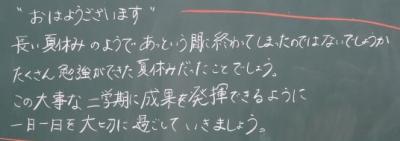 "おはようございます"
長い夏休みのようであっという間に終わてしまったのではないでしょうか
たくさん勉強ができた夏休みだったことでしょう。
この大事な二学期に成果を発揮できるように
一日一日を大切に過ごしていきましょう。